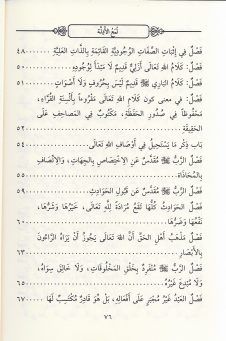 لمع الأدلة
فصل في إثبات الصفات الوجودية القائمة بالذات العلية ٤٨
فصل: كلام الله تعالى أزلي قديم لا مبتدأ لوجوده ٥٠
فصل: كلام الباري ﷺ قديم ليس بحروف ولا أصوات ٥١
فصل: في معنى كون كلام الله تعالى مقروءاً بألسنة القراء،
محفوظاً في صدور الحفظة، مكتوب في المصاحف على
الحقيقة ٥٢
باب ذكر ما يستحيل في أوصاف الله تعالى ٥٤
فصل: الرب ﷺ مقدس عن الاختصاص بالجهات، والاتصاف
بالمحاذاة ٥٥
فصل: الرب ﷺ مقدس عن قبول الحوادث ٥٩
فصل: الحوادث كلها تقع مرادة لله تعالى، خيرها وشرها،
نفعها وضرها ٦٠
فصل: مذهب أهل الحق أن الله تعالى يجوز أن يراه الراءون
بالأبصار ٦٣
فصل: الرب ﷺ منفرد بخلق المخلوقات، ولا خالق سواه،
ولا مبدع غيره ٦٥
فصل: العبد غير مجبر على أفعاله، بل هو قادر مكتسب لها ٦٧
٧٦